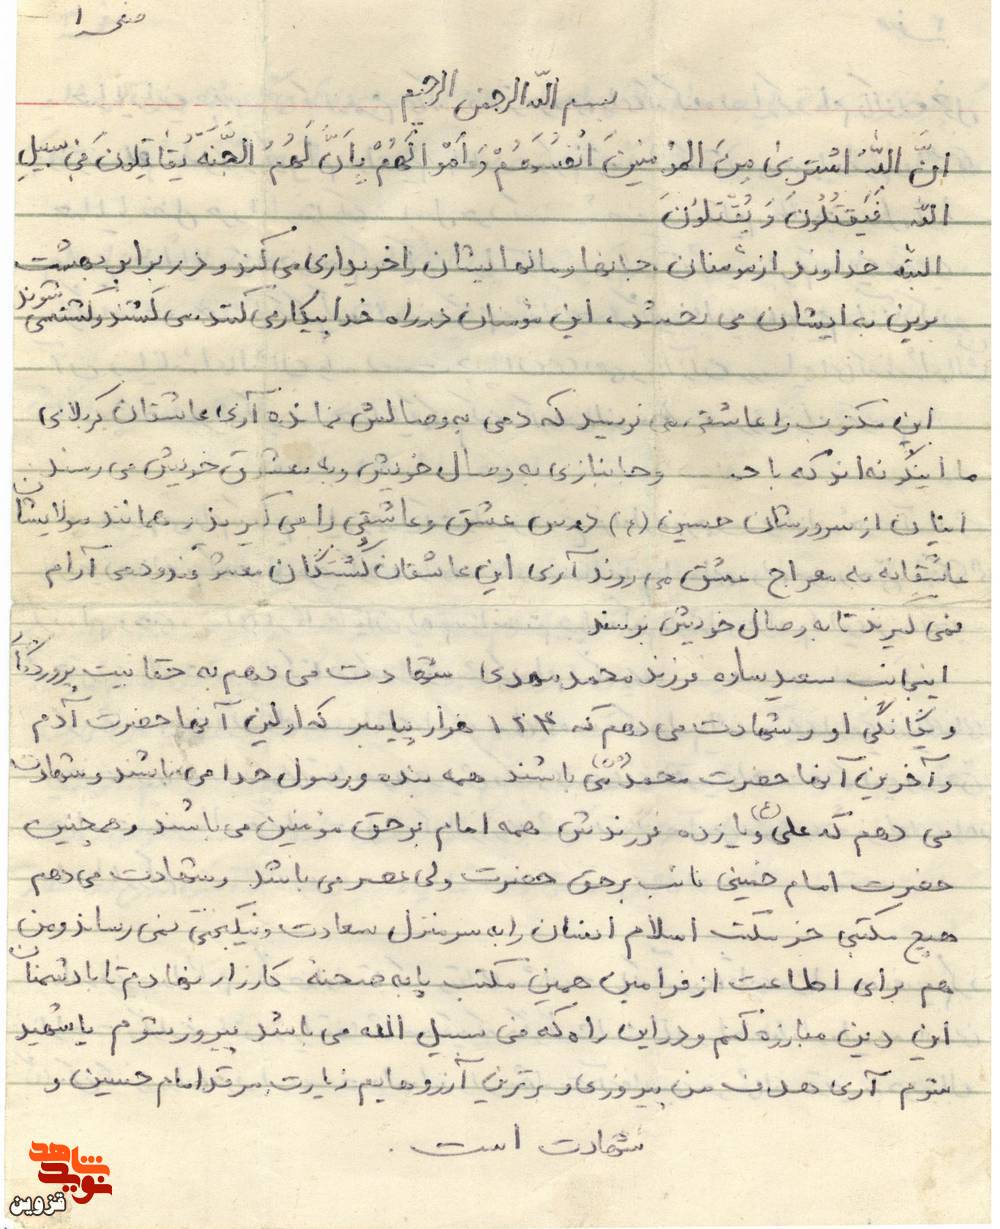 صفحه ۱
بسم الله الرحمن الرحیم
انَّ اللّهَ اشْتَریٰ مِنَ المُؤمِنینَ اَنْفُسَهُمْ وَ اَمْوالَهُمْ بِاَنَّ لَهُمُ الجَّنَهَ یُقاتِلونَ فی سَبیلِ
اللّه فَیَقتُلُونَ وَ یُقْتَلوُنَ
البته خداوند از مؤمنان جانها و مالهایشان را خریداری می کند و در برابر بهشت
برین به ایشان می بخشد، این مؤمنان در راه خدا پیکار می کنند می کشند و کشته می شوند
این مکتوب را عاشقی می نویسد که دمی به وصالش نمانده آری عاشقان کربلای
ما اینگونه اند که با وجانبازی به وصال خویش و به معشوق خویش می رسند
اینان از سرورشان حسین (ع) درس عشق و عاشقی را می آموزند و همانند مولایشان
عاشقانه به معراج عشق می روند آری این عاشقان کُشتگان معشوقند و دمی آرام
نمی گیرند تا به وصال خویش برسند
اینجانب سعید ساده فرزند محمد مهدی شهادت می دهم به حقانیت پروردگار
و یگانگی او و شهادت می دهم که ۱۲۴ هزار پیامبر که اولین آنها حضرت آدم
و آخرین آنها حضرت محمد (ص) می باشند همه بنده و رسول خدا می باشند و شهادت
می دهم که علی (ع) و یازده فرزندش همه امام برحق مؤمنین می باشند و همچنین
حضرت امام خمینی نائب برحق حضرت ولی عصر می باشد و شهادت می دهم
هیچ مکتبی جز مکتب اسلام انسان را به سر منزل سعادت و نیکبختی نمی رساند و من
هم برای اطاعت از فرامین همین مکتب پا به صحنه کارزار نهادم تا با دشمنان
این دین مبارزه کنم و در این راه که فی سبیل الله می باشد پیروز شوم یا شهید
شوم آری هدف من پیروزی و برترین آرزوهایم زیارت مرقد امام حسین و
شهادت است .
شاهد
نوید
قزوین